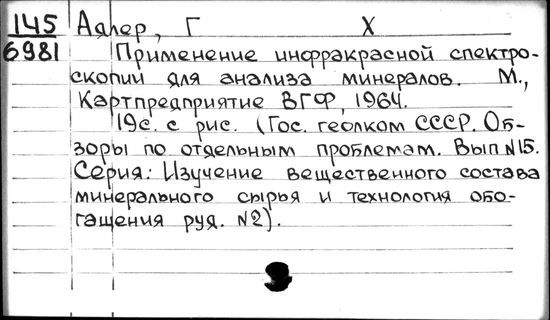 145 Адлер, Г X
6981 Применение инфракрасной спектро-
скопии для анализа минералов. М.,
Картпредприятие ВГФ, 1964.
19с. с рис. (Гос. геолком СССР. Об-
зоры по отдельным проблемам. Вып N15.
Серия: Изучение вещественного состава
минерального сырья и технология обо-
гащения руд. N2).